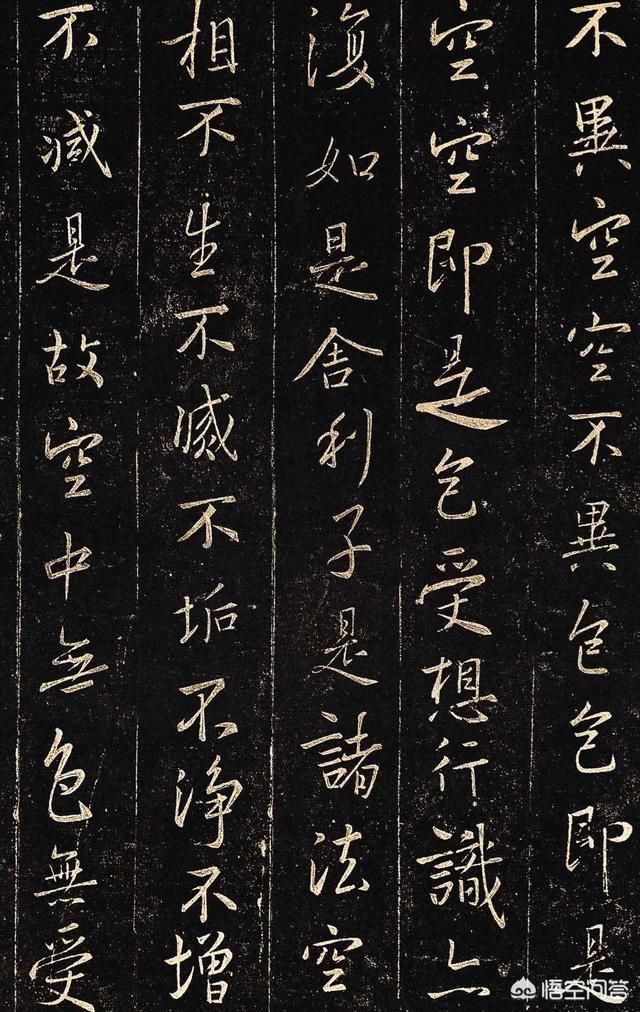 不異空空不異色色即是
空空即是色受想行識亦
復如是舍利子是諸法空
相不生不滅不垢不淨不增
不減是故空中無色無受
悟空问答